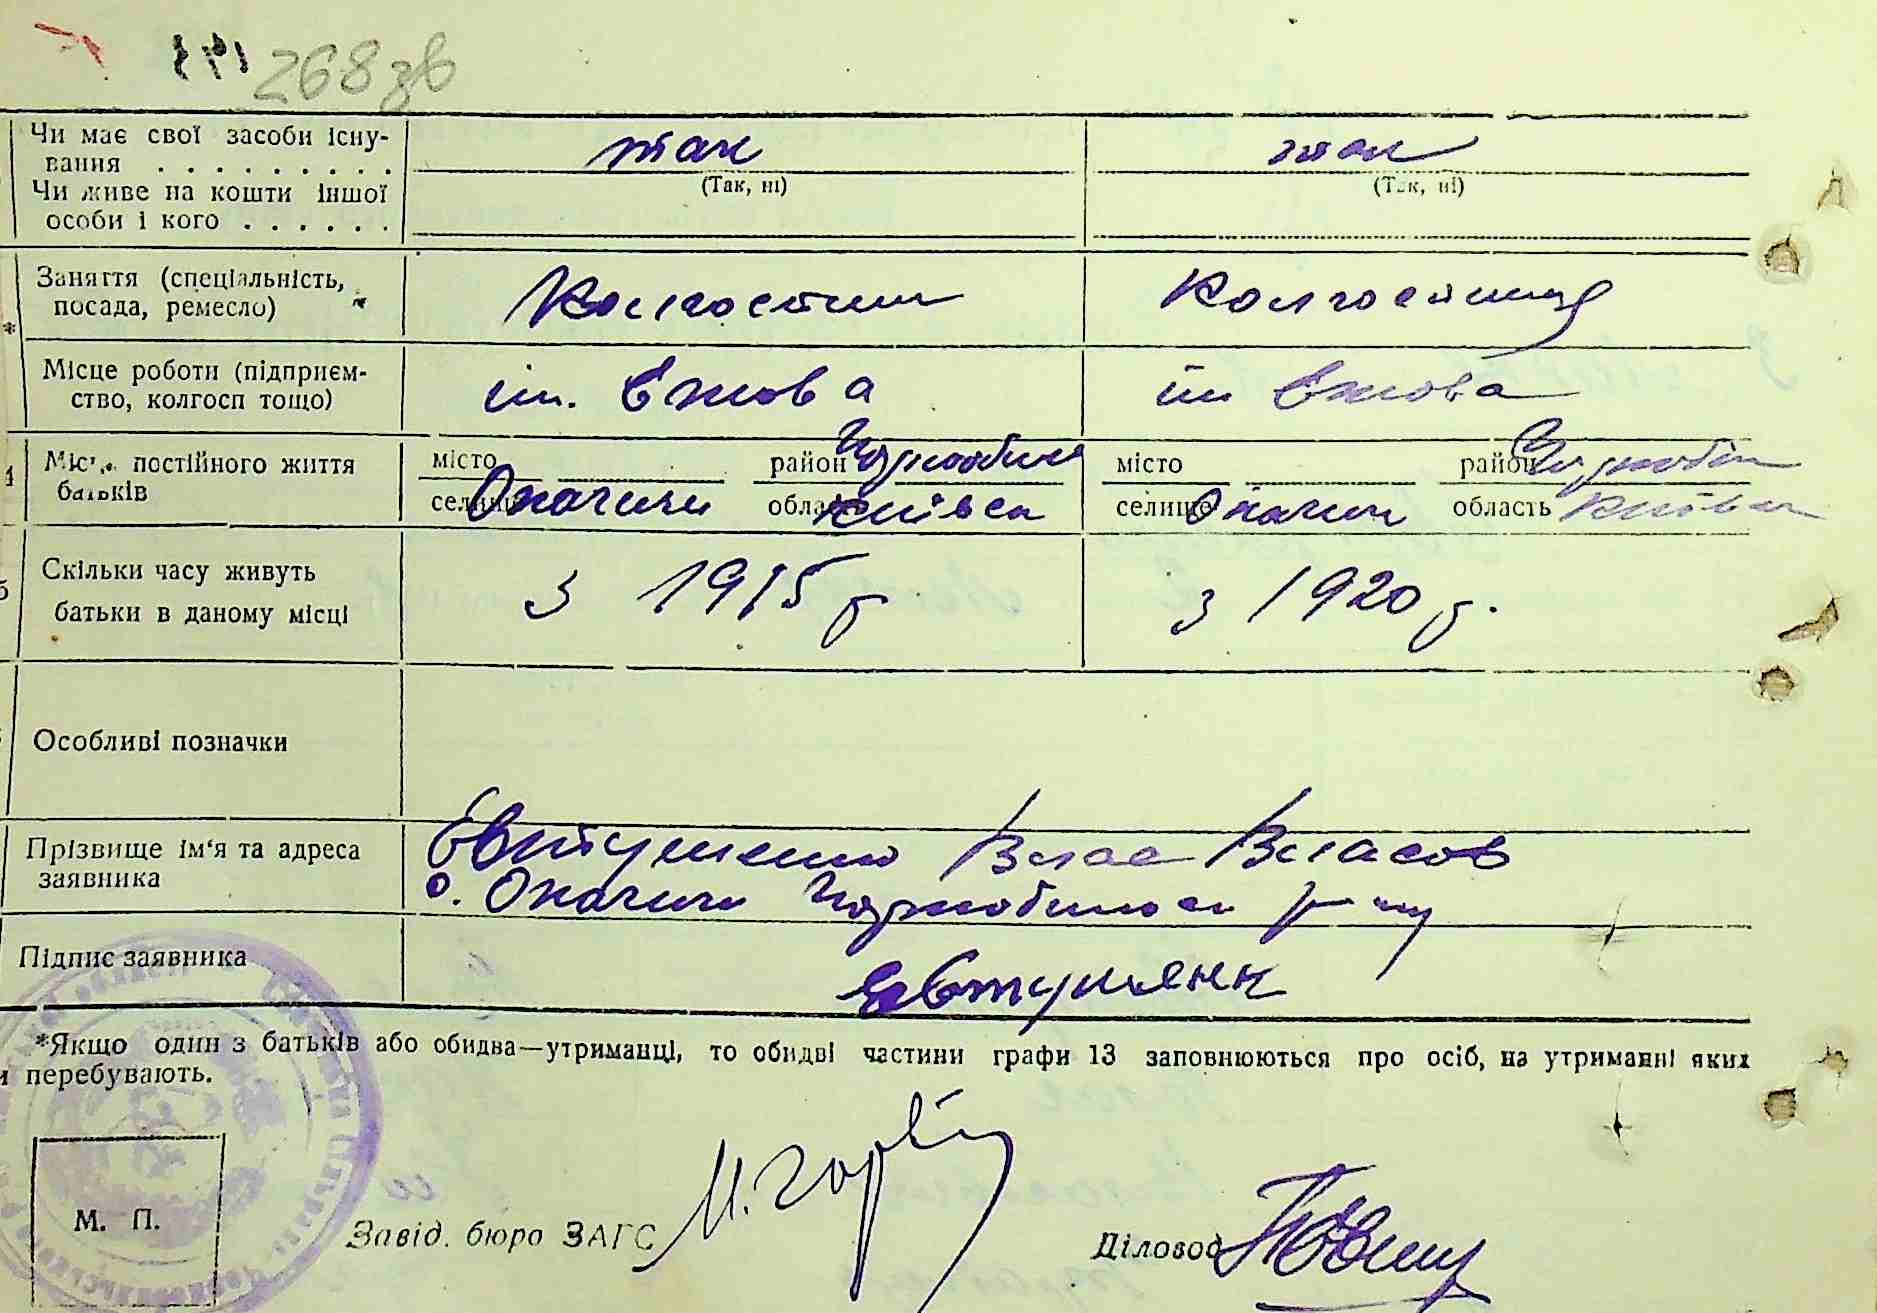 268зв
Чи має свої засоби існу-
вання . . . . . . . . .
так
так
(Так, ні)
(Так, ні)
Чи живе на кошти іншої
особи і кого . . . . . .
Заняття (спеціальність,
посада, ремесло)
Колгоспник
Колгоспниця
*
Місце роботи (підприєм-
ство, колгосп тощо)
ім. Єжова
ім Єжова
Місце постійного життя
батьків
місто район Чорнобил
селище Опачичи область Київск
місто район Чорнобил
селище Опачичи область Київск
Скільки часу живуть
батьки в даному місці
з 1915 р
з 1920 р.
Особливі позначки
Прізвище ім'я та адреса
заявника
Євтушенко Влас Власов
с. Опачичи Чорнобильск р-ну
Підпис заявника
*Якщо один з батьків або обидва—утриманці, то обидві частини графи 13 заповнюються про осіб, на утриманні яких
перебувають.
М. П.
Завід. бюро ЗАГС
Діловод